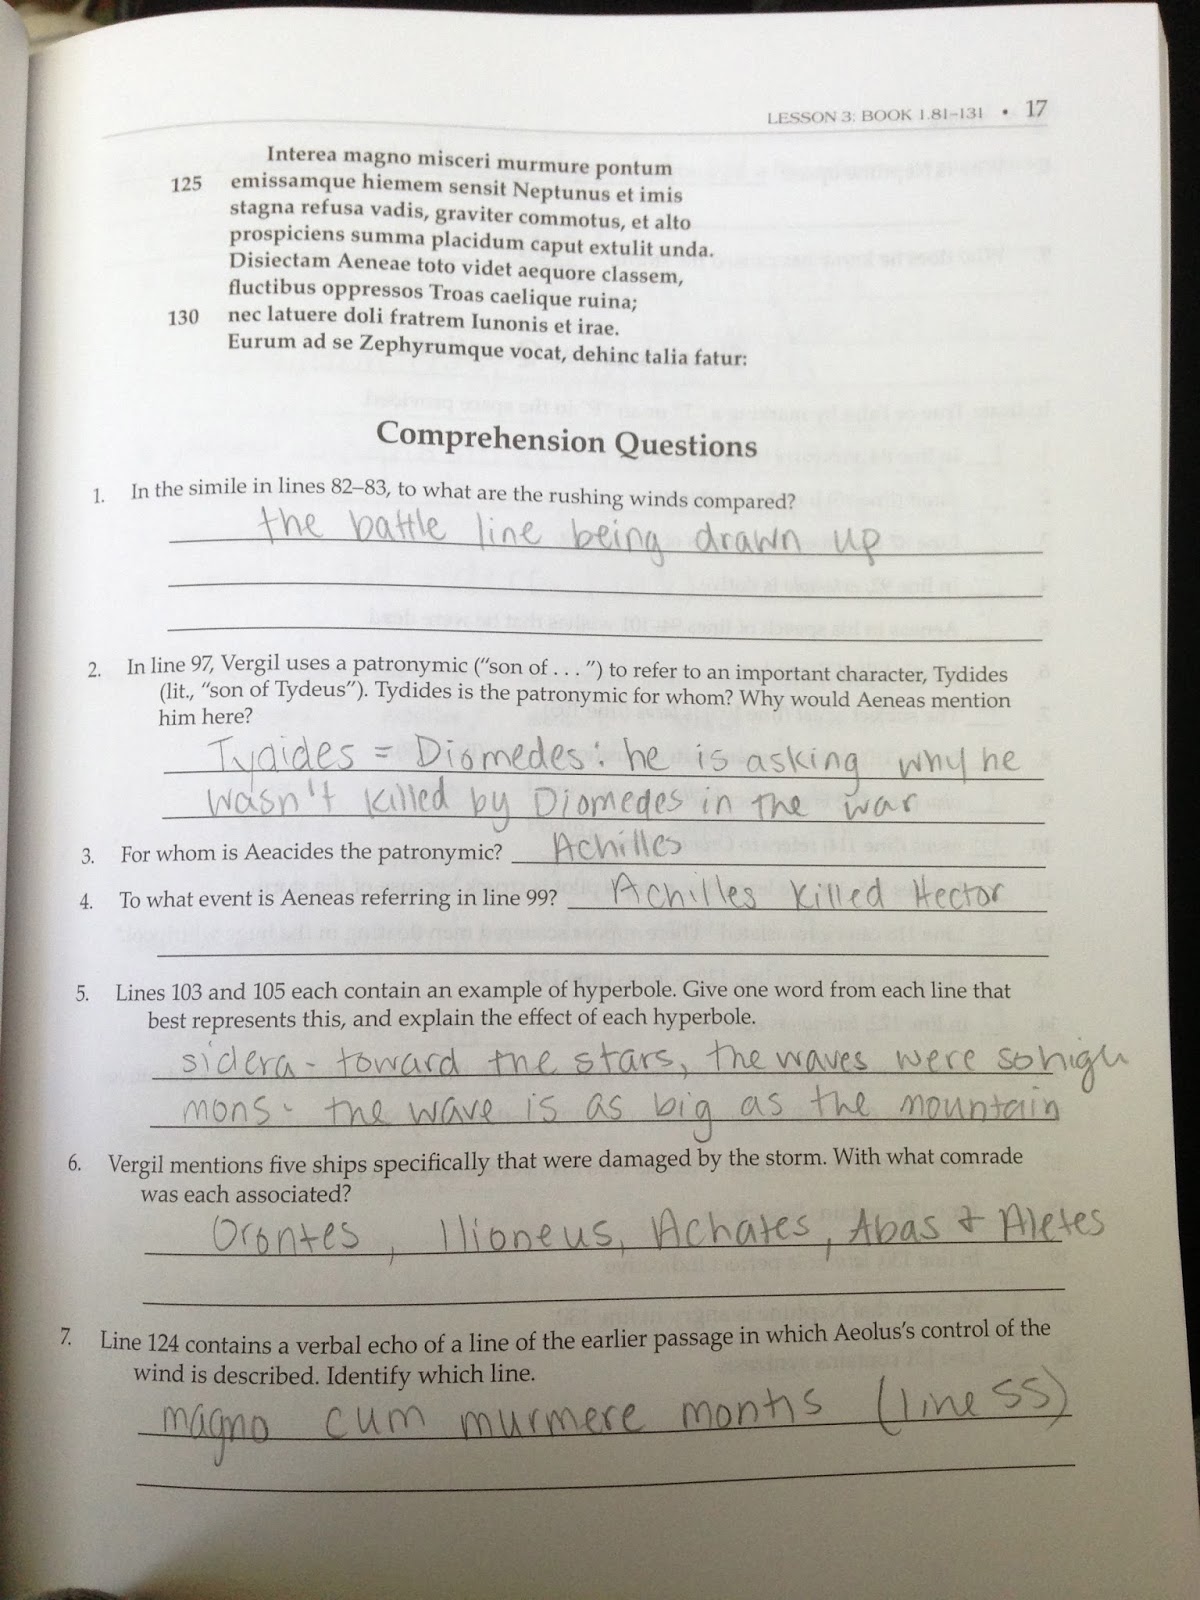 LESSON 3: BOOK 1.81–131 • 17
Interea magno misceri murmure pontum
125 emissamque hiemem sensit Neptunus et imis
stagna refusa vadis, graviter commotus, et alto
prospiciens summa placidum caput extulit unda.
Disiectam Aeneae toto videt aequore classem,
fluctibus oppressos Troas caelique ruina;
130 nec latuere doli fratrem Iunonis et irae.
Eurum ad se Zephyrumque vocat, dehinc talia fatur:
Comprehension Questions
1. In the simile in lines 82–83, to what are the rushing winds compared?
the battle line being drawn up
2. In line 97, Vergil uses a patronymic (“son of . . . ”) to refer to an important character, Tydides
(lit., “son of Tydeus”). Tydides is the patronymic for whom? Why would Aeneas mention
him here?
Tydides = Diomedes: he is asking why he
wasn't killed by Diomedes in the war
3. For whom is Aeacides the patronymic? Achilles
4. To what event is Aeneas referring in line 99? Achilles killed Hector
5. Lines 103 and 105 each contain an example of hyperbole. Give one word from each line that
best represents this, and explain the effect of each hyperbole.
sidera - toward the stars, the waves were so high
mons - the wave is as big as the mountain
6. Vergil mentions five ships specifically that were damaged by the storm. With what comrade
was each associated?
Orontes, Ilioneus, Achates, Abas + Aletes
7. Line 124 contains a verbal echo of a line of the earlier passage in which Aeolus’s control of the
wind is described. Identify which line.
magno cum murmere montis (line 55)